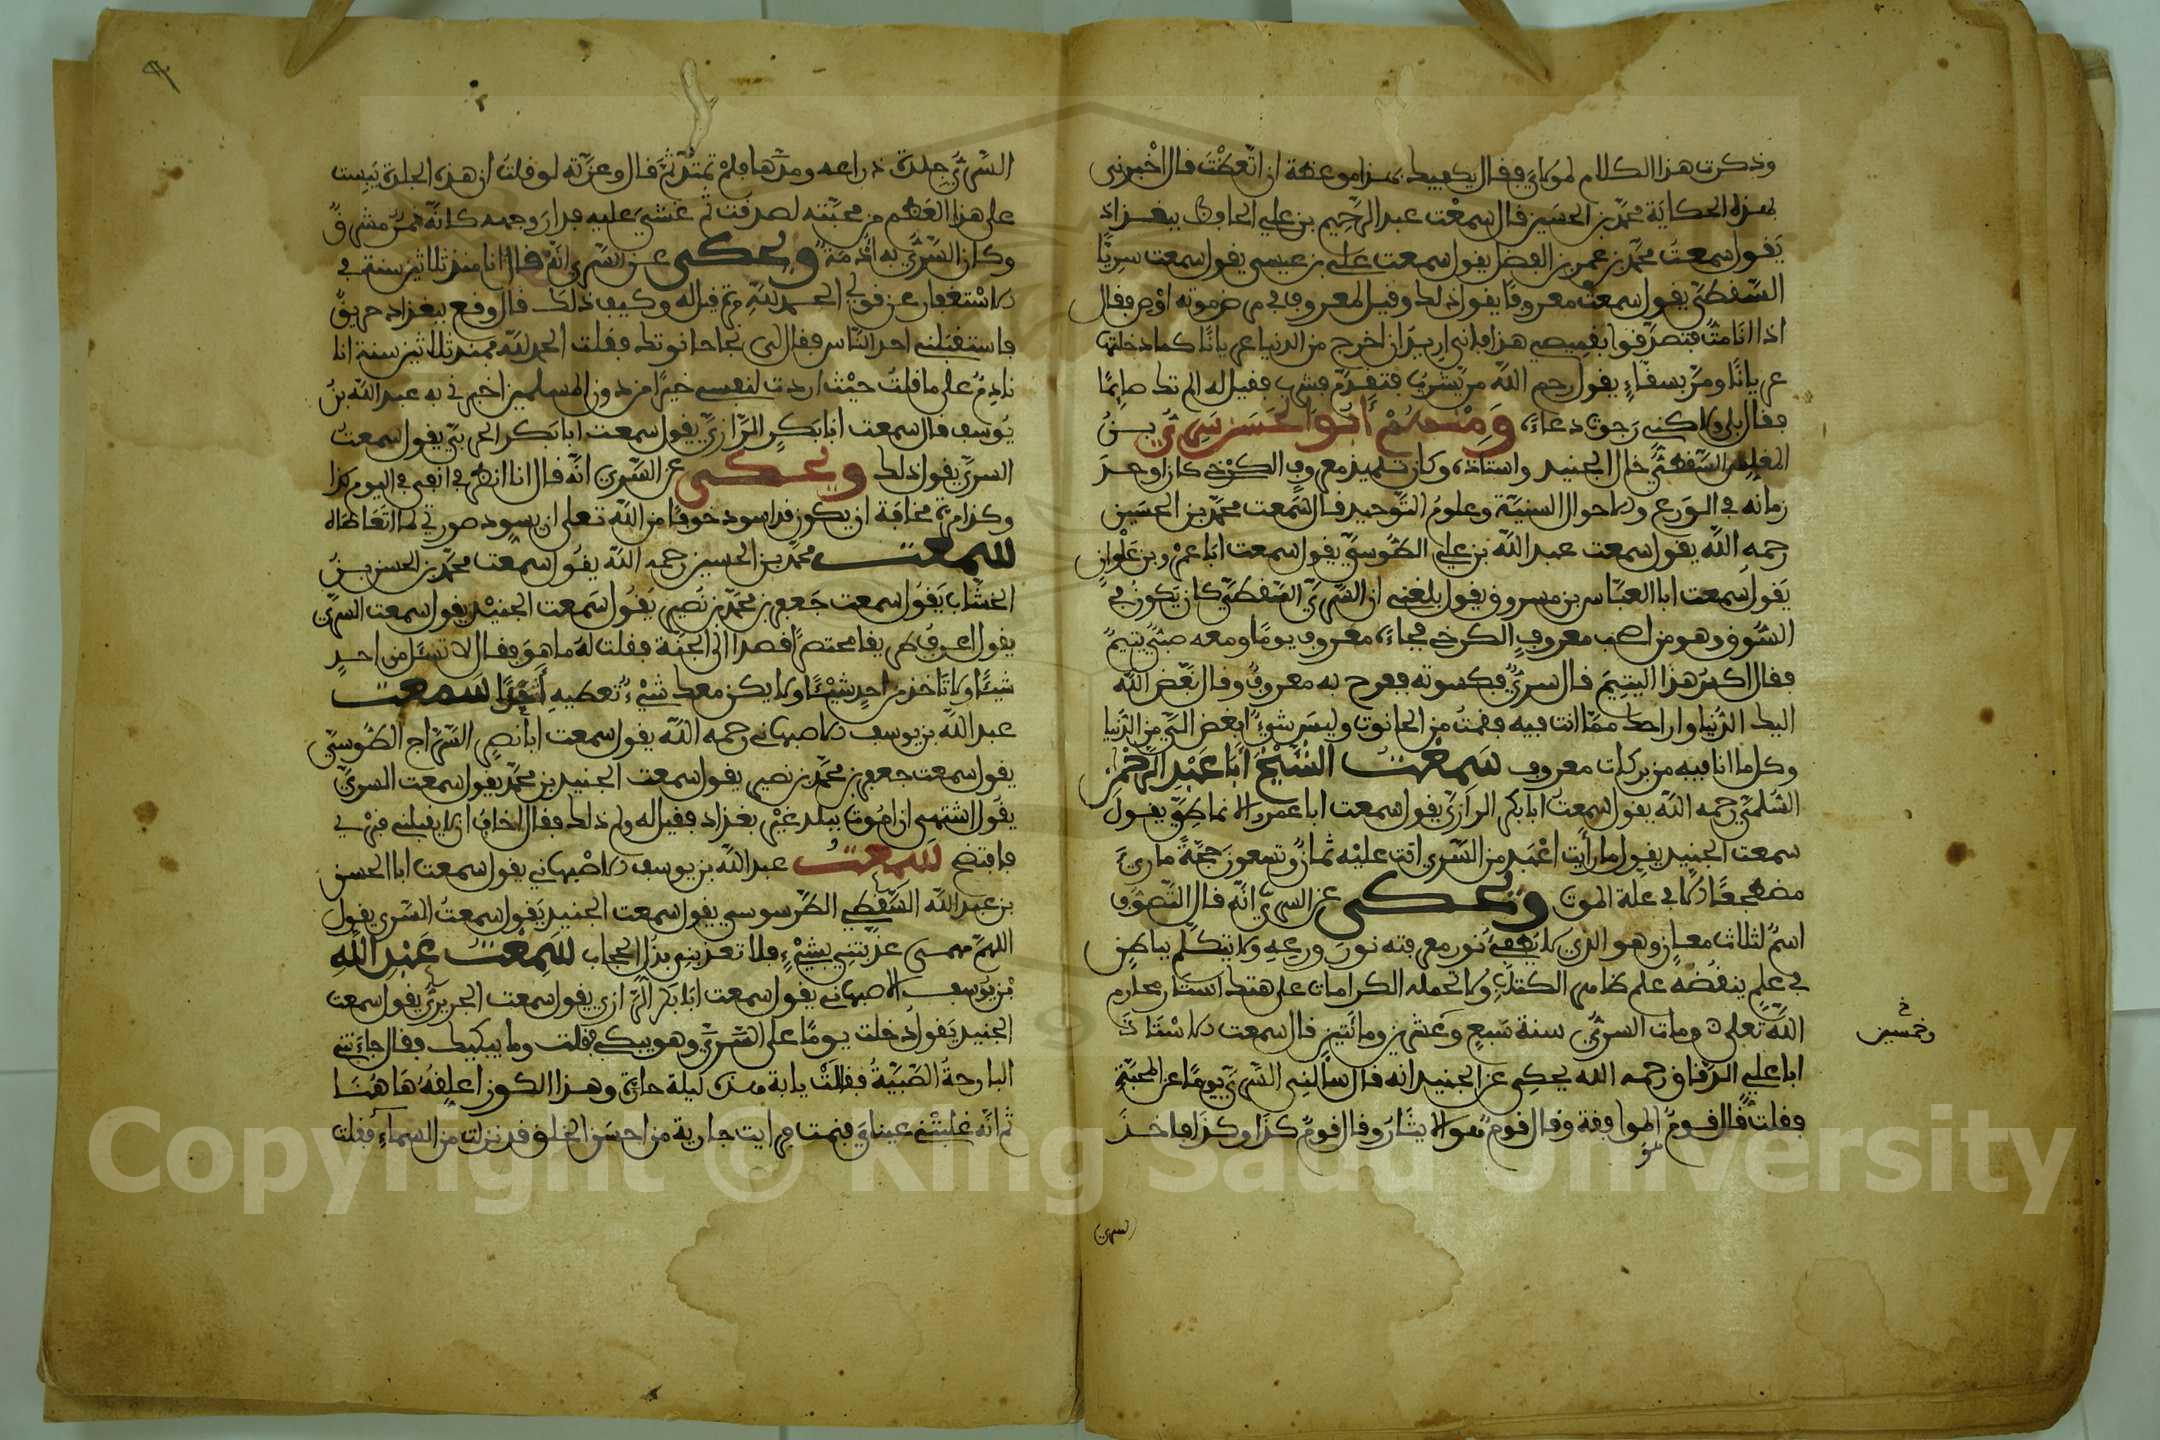 وذكرت هذا الكلام لمولاي فقال يكفيك بهذا موعظة ان اتعظت قال اخبرني
بهذه الحكاية محمد بن الحسين قال سمعت عبد الرحيم بن علي الحافظ ببغداد
يقول سمعت محمد بن عمر بن الفضل يقول سمعت علي بن عيسى يقول سمعت سريا
السقطي يقول سمعت معروفا يقول ذلك وقيل لمعروف في مرض موته اوص فقال
اذا انا مت فتصدقوا بقميصي هذا فاني اريد ان اخرج من الدنيا عريانا كما دخلتها
عريانا ومر بسقاء يقول رحم الله من يشرب فتقدم فشرب فقيل له الم تك صايما
فقال بلى ولاكني رجوت دعاءه ومنهم أبو الحسن سري بن
المغلس السقطي خال الجنيد واستاذه وكان تلميذ معروف الكرخي كان اوحد
زمانه في الورع والاحوال السنية وعلوم التوحيد قال سمعت محمد بن الحسين
رحمه الله يقول سمعت عبد الله بن علي الطوسي يقول سمعت ابا عمرو بن علوان
يقول سمعت ابا العباس بن مسروق يقول بلغني ان السري السقطي كان يكون في
السوق وهو من اصحب معروف الكرخي فجاءه معروف يوما ومعه صبي يتيم
فقال اكس هذا اليتيم قال سري فكسوته ففرح به معروف وقال بغض الله
اليك الدنيا واراحك مما انت فيه فقمت من الحانوت وليس شيء ابغض الي من الدنيا
وكل ما انا فيه من بركات معروف سمعت الشيخ أبا عبد الرحمن
السلمي رحمه الله يقول سمعت ابا بكر الرازي يقول سمعت ابا عمرو الانماطي يقول
سمعت الجنيد يقول ما رأيت اعبد من السري اتت عليه ثمان وتسعون حجة ما رئي
مضطجعا الا في علة الموت ويحكى عن السري انه قال التصوف
اسم لثلاث معان وهو الذي لا يطفئ نور معرفته نور ورعه ولا يتكلم بباطن
في علم ينقضه علم ظاهر الكتاب ولا تحمله الكرامات على هتك استار محارم
الله تعلى ومات السري سنة سبع وعشرين ومائتين قال سمعت الاستاذ
وخمسين
ابا علي الدقاق رحمه الله يحكي عن الجنيد انه قال سألني السري يوما عن المحبة
فقلت قال قوم الموافقة وقال قوم هو الايثار وقال قوم كذا وكذا فاخذ
السري
السري جلدة ذراعه ومدها فلم تمتد ثم قال وعزته لو قلت ان هذه الجلدة يبست
على هذا العظم من محبته لصدقت ثم غشي عليه فدار وجهه كانه قمر مشرق
وكان السري به أدمة ويحكى عن السري انه قال انا منذ ثلاثين سنة في
الاستغفار عن قولي الحمد لله مرة قيل له وكيف ذلك قال وقع ببغداد حريق
فاستقبلني احد الناس فقال لي نجا حانوتك فقلت الحمد لله فمنذ ثلاثين سنة انا
نادم على ما قلت حيث اردت لنفسي خيرا من دون المسلمين اخبرني به عبد الله بن
يوسف قال سمعت ابا بكر الرازي يقول سمعت ابا بكر الحربي يقول سمعت
السري يقول ذلك ويحكى عن السري انه قال انا انظر في انفي في اليوم كذا
وكذا مرة مخافة ان يكون قد اسود خوفا من الله تعلى ان يسود صورتي لما اتعاطاه
سمعت محمد بن الحسين رحمه الله يقول سمعت محمد بن الحسن بن
الخشاب يقول سمعت جعفر بن محمد بن نصير يقول سمعت الجنيد يقول سمعت السري
يقول اعرف طريقا مختصرا قصدا الى الجنة فقلت له ما هو فقال لا تسئل من احد
شيئا ولا تاخذ من احد شيئا ولا يكن معك شيء تعطيه أحدا سمعت
عبد الله بن يوسف الاصبهاني رحمه الله يقول سمعت ابا نصر السراج الطوسي
يقول سمعت جعفر بن محمد بن نصير يقول سمعت الجنيد بن محمد يقول سمعت السري
يقول اشتهى ان اموت ببلد غير بغداد فقيل له ولم ذلك فقال اخاف ان لا يقبلني قبري
فافتضح سمعت عبد الله بن يوسف الاصبهاني يقول سمعت ابا الحسن
بن عبد الله السقطي الطرسوسي يقول سمعت الجنيد يقول سمعت السري يقول
اللهم مهمى عذبتني بشيء فلا تعذبني بذل الحجاب سمعت عبد الله
بن يوسف الاصبهاني يقول سمعت ابا بكر الرازي يقول سمعت الجريري يقول سمعت
الجنيد يقول دخلت يوما على السري وهو يبكي فقلت وما يبكيك فقال جاءتني
البارحة الصبية فقالت يا ابة هذه ليلة حارة وهذا الكوز اعلقه هاهنا
ثم انه غلبتني عيناي فنمت فرايت جارية من احسن الخلق قد نزلت من السماء فقلت